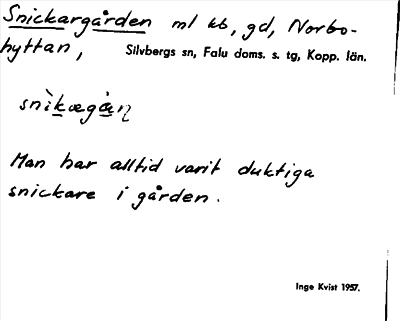 Snickargården ml kb, gd, Norbo-
hyttan, Silvbergs sn, Falu doms. s. tg, Kopp. län.
snìkægå̀ɳ
Man har alltid varit duktiga
snickare i gården.
Inge Kvist 1957.